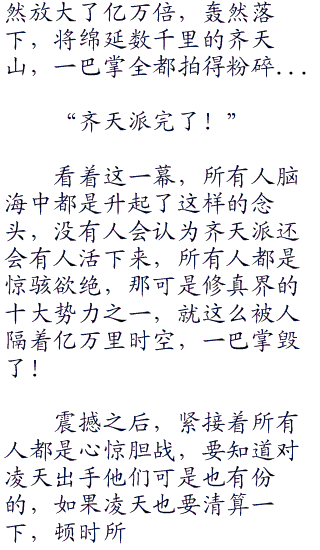 然放大了亿万倍，轰然落
下，将绵延数千里的齐天
山，一巴掌全都拍得粉碎...
“齐天派完了！”
看着这一幕，所有人脑
海中都是升起了这样的念
头，没有人会认为齐天派还
会有人活下来，所有人都是
惊骇欲绝，那可是修真界的
十大势力之一，就这么被人
隔着亿万里时空，一巴掌毁
了！
震撼之后，紧接着所有
人都是心惊胆战，要知道对
凌天出手他们可是也有份
的，如果凌天也要清算一
下，顿时所